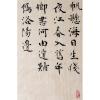 帆懸海日生殘
夜江春入舊年
鄉書何由達歸
雁洛陽邊